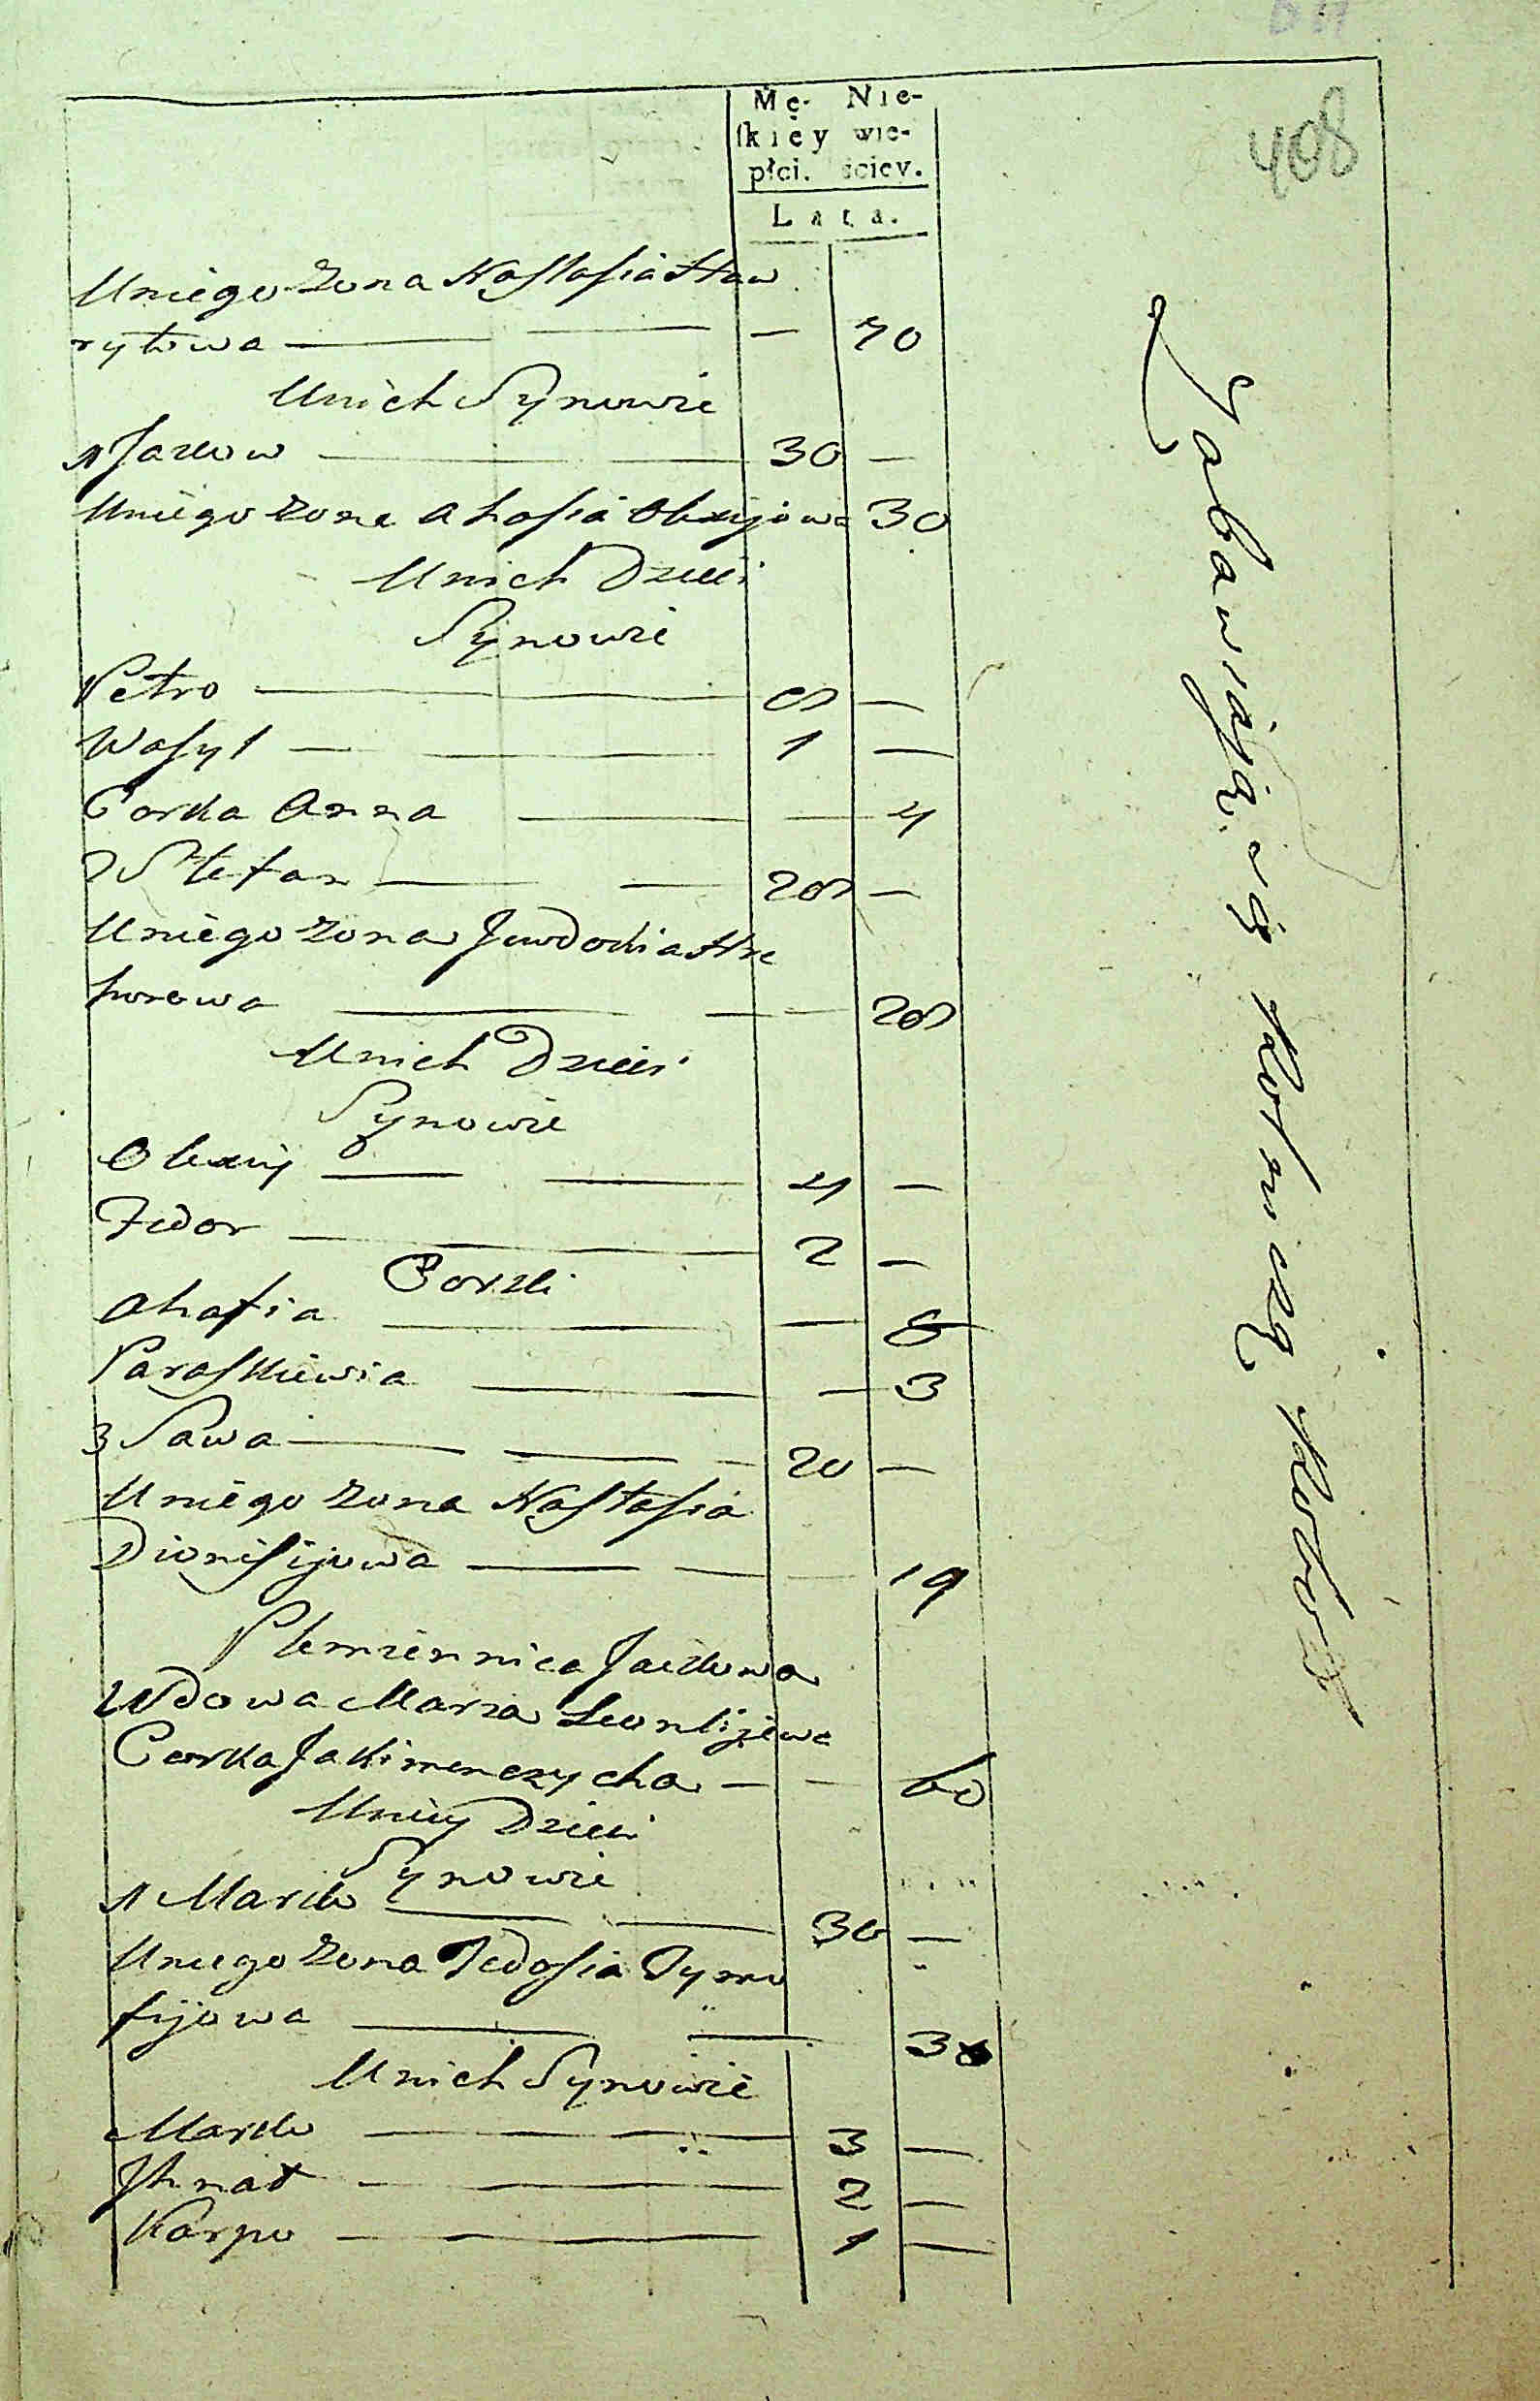 408
Mę- Nie-
ſkiey wie-
płci. ściey.
Lata.
Uniego Zona Naſtaſia Haw
ryłowa — — — 70
Unich Synowie
1 Jackow — — 30 —
Uniego Zona Ahafia Olexijowa 30
Unich Dzieci
Synowie
Petro — — 8 —
Waſyl — — 1 —
Corka Anna — — 4
2 Stefan — — 28 —
Uniego Zona Jewdokia Hre
horowa — — — 28
Unich Dzieci
Synowie
Olexiy — — 4 —
Fedor — — 2 —
Corki
Ahafia — — — 6
Paraſkiewia — — — 3
3 Sawa — — — 20 —
Uniego Zona Naſtaſia
Dioniſijowa — — — 19
Plemiennica Jackowa
Wdowa Maria Leontijewa
Corka Jakimenczycha — — 60
Uniey Dzieci
Synowie
1 Marko — — 30 —
Uniego Zona Fedoſia Tymo
fijowa — — 30
Unich Synowie
Marko — — — 3 —
Ihnat — — 2 —
Karpo — — — 1 —
Zabawiaią się Rolniczą Robotą